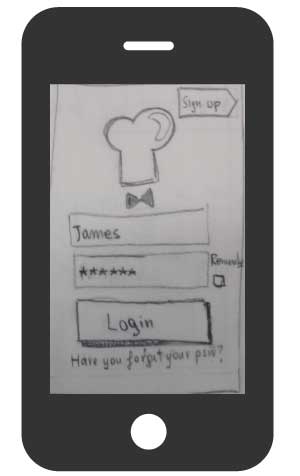 Sign up
James
Remember
******
Login
Have you forget your psw?